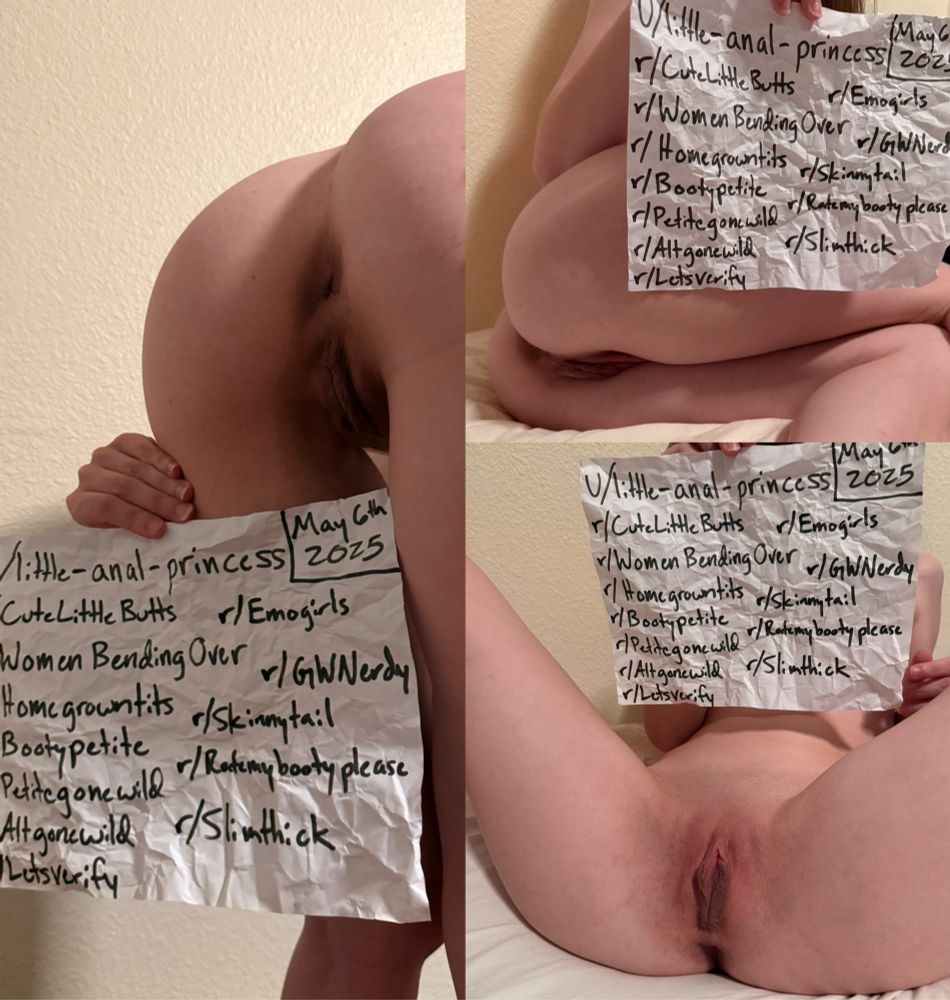 /little-anal-princess
May 6th
2025
CuteLittleButts r/Emogirls
Women Bending Over r/GWNerdy
Homegrowntits r/Skinnytail
Bootypetite r/Ratemybootyplease
Petitegonewild
Altgonewild r/Slimthick
/Letsverify
U/little-anal-princess
May 6
2025
r/CuteLittleButts r/Emogirls
r/Women Bending Over r/GWNerd
r/Homegrowntits r/Skinnytail
r/Bootypetite r/Ratemybootyplease
r/Petitegonewild
r/Altgonewild r/Slimthick
r/Letsverify
U/little-anal-princess
May 6th
2025
r/CuteLittleButts r/Emogirls
r/Women Bending Over r/GWNerdy
r/Homegrowntits r/Skinnytail
r/Bootypetite r/Ratemybootyplease
r/Petitegonewild
r/Altgonewild r/Slimthick
r/Letsverify